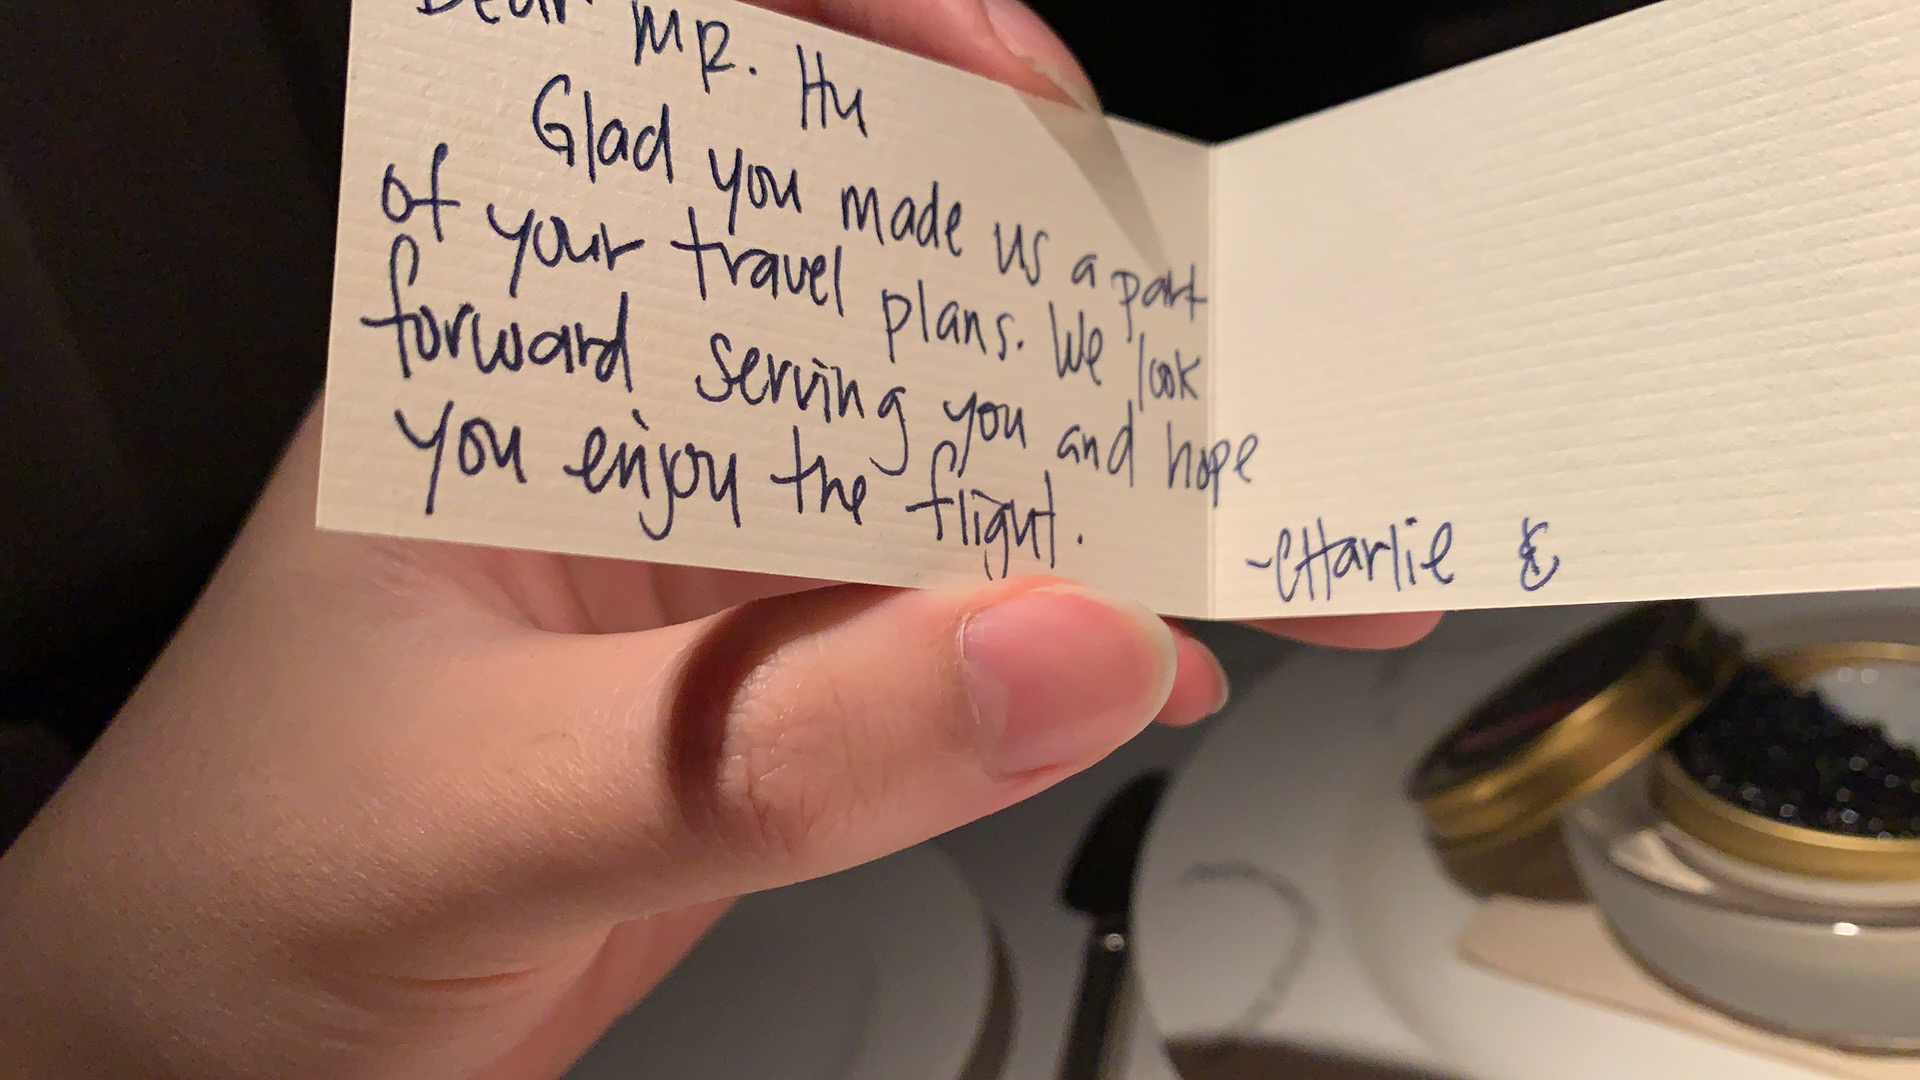 Dear MR. Hu
Glad you made us a part
of your travel plans. We look
forward serving you and hope
you enjoy the flight.
-CHarlie &